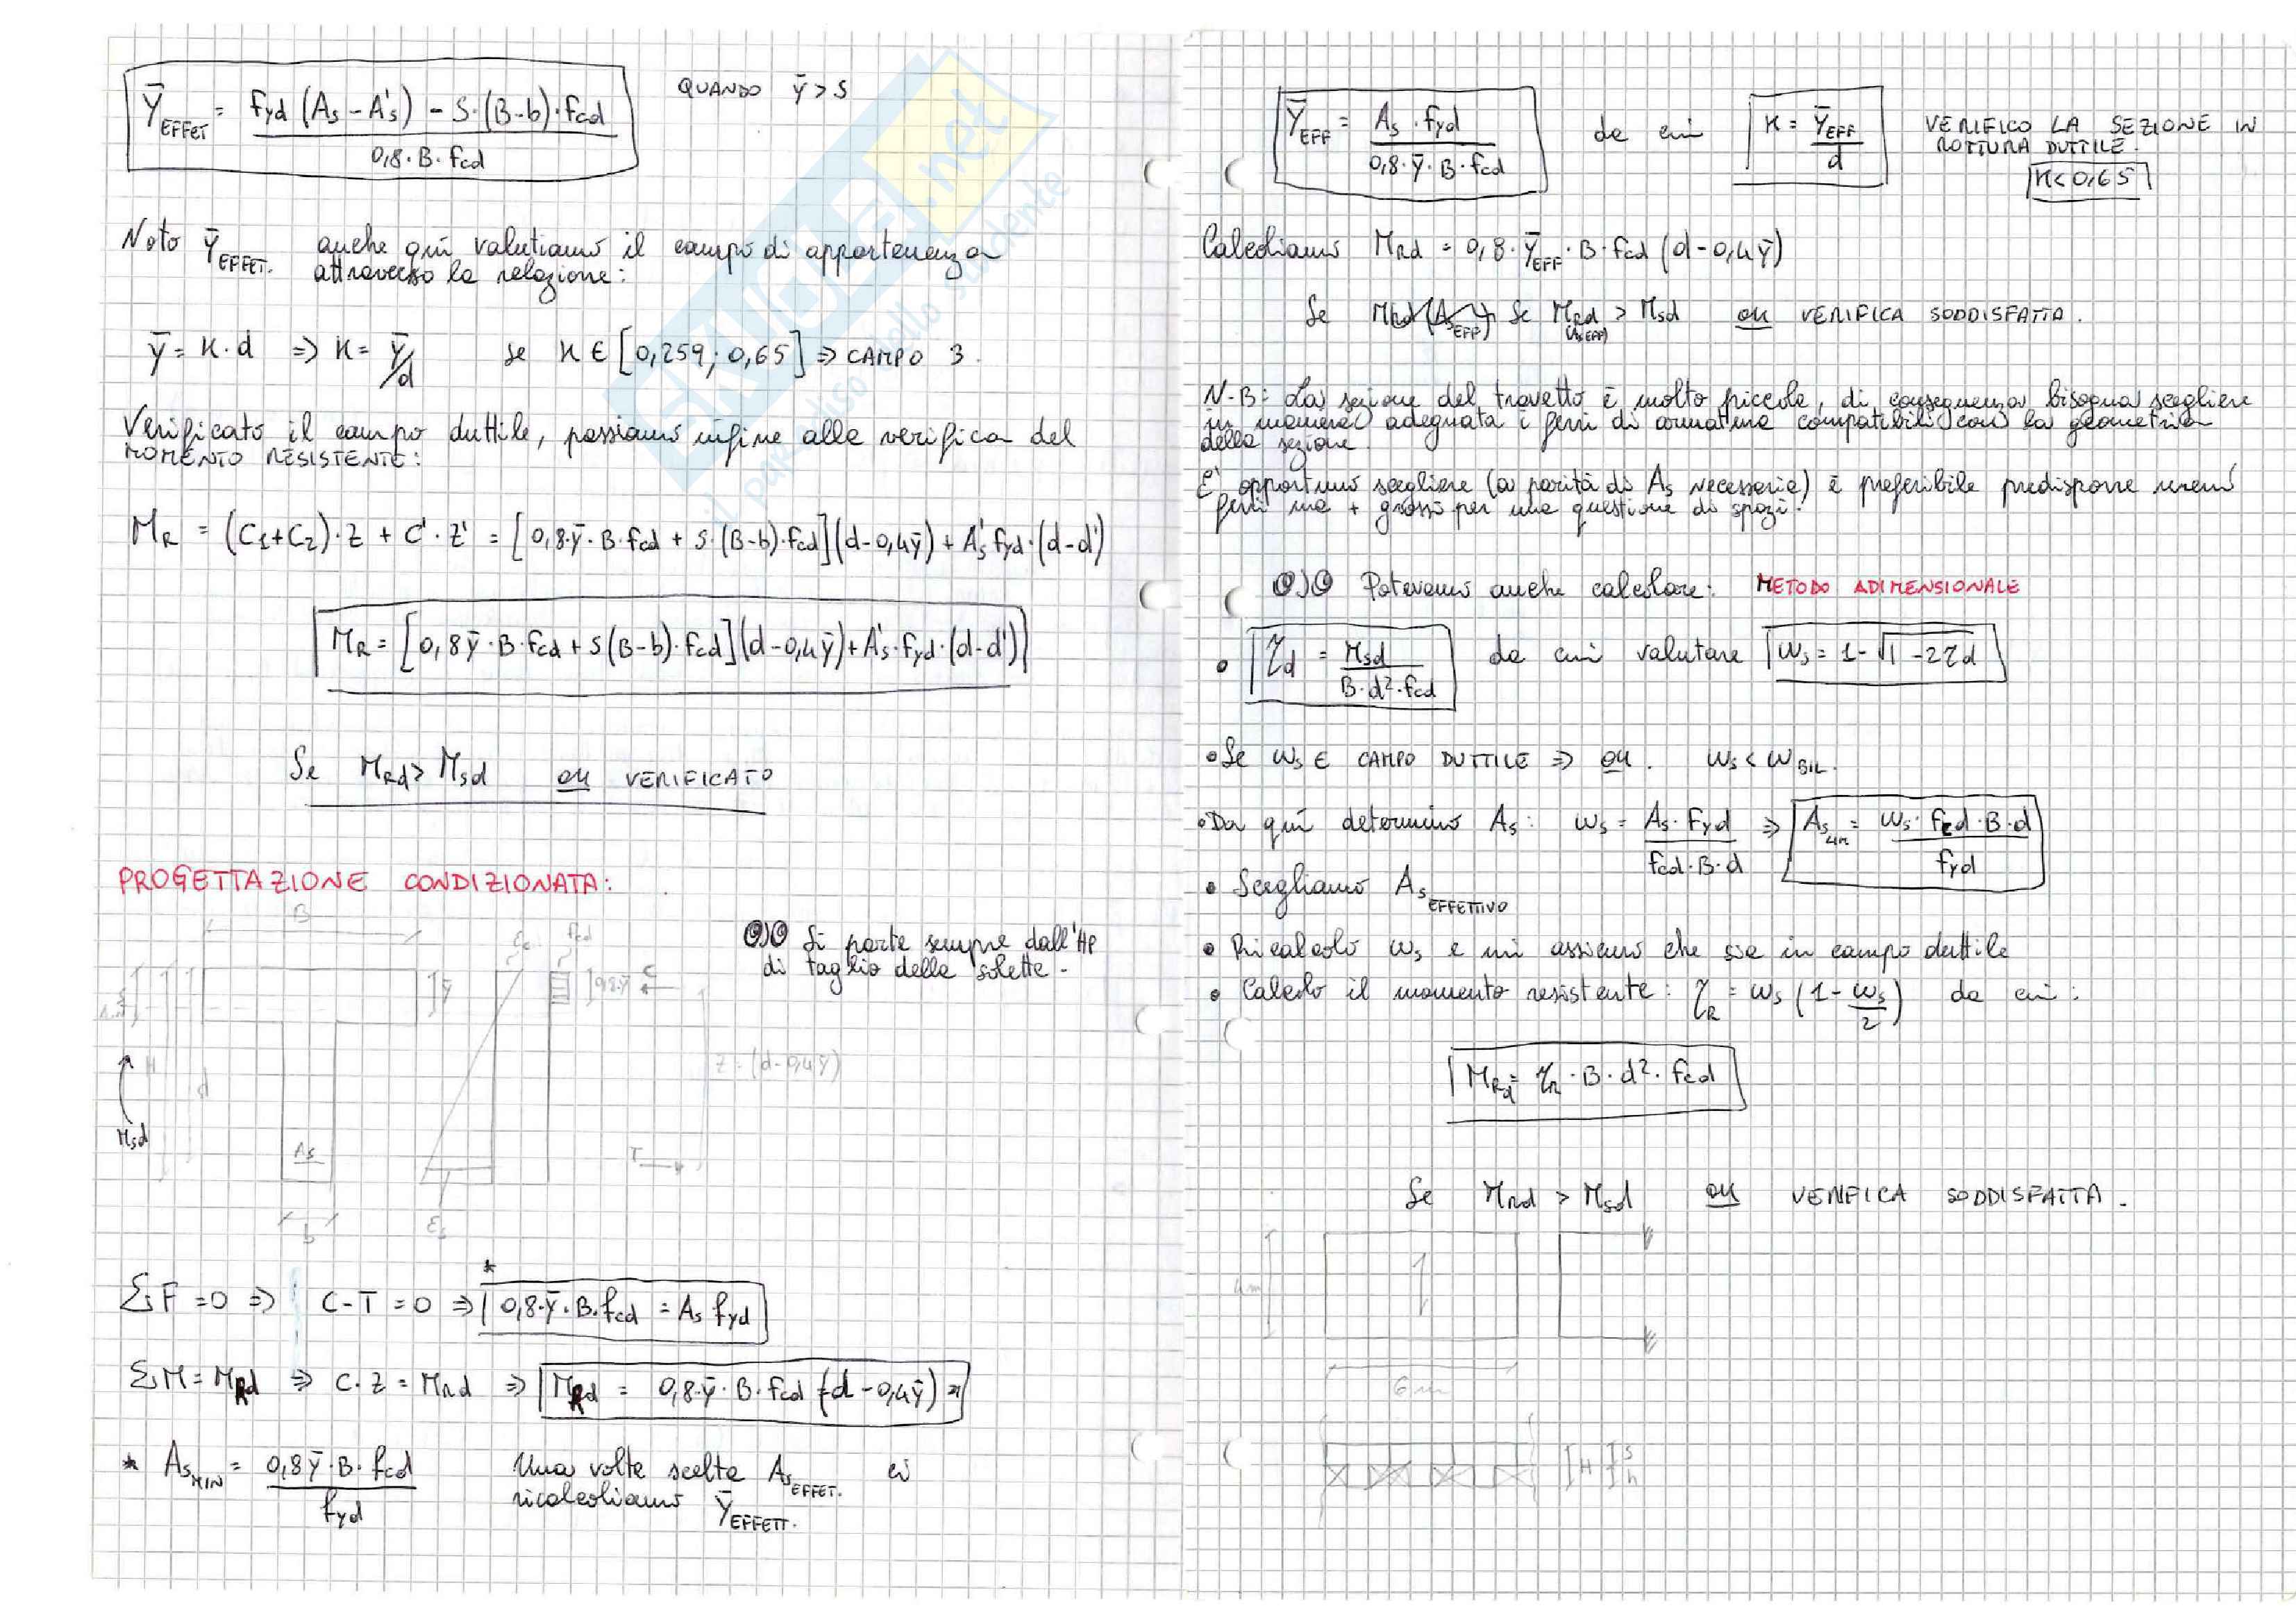 ȳ_EFFET = fyd (As - A's) - S·(B-b)·fcd / 0,8·B·fcd QUANDO ȳ > S
Noto ȳ_EFFET. anche qui valutiamo il campo di appartenenza
attraverso la relazione:
ȳ = K·d ⇒ K = ȳ/d se K ∈ [0,259; 0,65] ⇒ CAMPO 3.
Verificato il campo duttile, passiamo infine alle verifica del
MOMENTO RESISTENTE:
M_R = (C1+C2)·Z + C'·Z' = [0,8·ȳ·B·fcd + S·(B-b)·fcd](d-0,4ȳ) + A's fyd·(d-d')
M_R = [0,8ȳ·B·fcd + S(B-b)·fcd](d-0,4ȳ) + A's·fyd·(d-d')
Se MRd > Msd OK VERIFICATO
PROGETTAZIONE CONDIZIONATA:
B
εc fcd
Si parte sempre dall'HP
di taglio delle solette -
ȳ 0,8·ȳ C
H d
Z = (d-0,4ȳ)
Msd
As T
b εs
ΣF = 0 ⇒ C-T = 0 ⇒ * 0,8·ȳ·B·fcd = As fyd
ΣM = MRd ⇒ C·Z = MRd ⇒ MRd = 0,8·ȳ·B·fcd (d-0,4ȳ)
* As_MIN = 0,8ȳ·B·fcd / fyd Una volte scelta As_EFFET. ci
ricalcoliamo ȳ_EFFETT.
ȳ_EFF = As·fyd / 0,8·ȳ·B·fcd da cui K = ȳ_EFF / d VERIFICO LA SEZIONE IN
ROTTURA DUTTILE.
K < 0,65
Calcoliamo MRd = 0,8·ȳ_EFF·B·fcd (d-0,4ȳ)
Se MRd (As_EFF) Se MRd (As EFF) > Msd OK VERIFICA SODDISFATTA.
N-B: La sezione del travetto è molto piccola, di conseguenza bisogna scegliere
in maniera adeguata i ferri di armatura compatibili con la geometria
della sezione.
E' opportuno scegliere (a parità di As necessaria) è preferibile predisporre meno
ferri ma + grossi per una questione di spazi.
Potevamo anche calcolare: METODO ADIMENSIONALE
• ηd = Msd / B·d²·fcd da cui valutare ws = 1-√1-2ηd
• Se ws ∈ CAMPO DUTTILE ⇒ OK. ws < w BIL.
• Da qui determino As: ws = As·fyd / fcd·B·d ⇒ As = ws·fcd·B·d / fyd
• Scegliamo As EFFETTIVO
• Ricalcolo ws e mi assicuro che sia in campo duttile
• Calcolo il momento resistente: ηR = ws (1 - ws/2) da cui:
MRd = ηR·B·d²·fcd
Se MRd > Msd OK VERIFICA SODDISFATTA.
4m
6m
H S
h